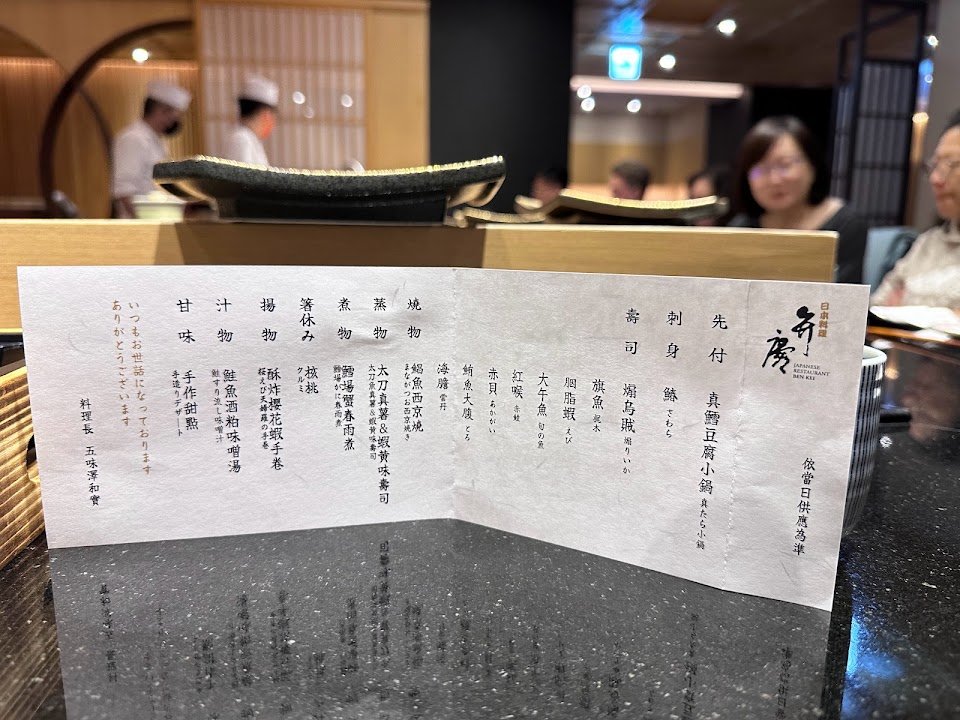 日本料理
弁慶
JAPANESE
RESTAURANT
BEN KEI
依當日供應為準
先付
真鱈豆腐小鍋 真たら小鍋
刺身
鰆 さわら
壽司
煽烏賊 煽りいか
旗魚 梶木
胭脂蝦 えび
大午魚 旬の魚
紅喉 赤鯥
赤貝 あかがい
鮪魚大腹 とろ
海膽 雲丹
燒物
鯧魚西京燒
まながつお西京焼き
蒸物
太刀真薯&蝦黄味壽司
太刀魚真薯&蝦黄味壽司
煮物
鱈場蟹春雨煮
鱈場がに春雨煮
箸休み
核桃
クルミ
揚物
酥炸櫻花蝦手卷
桜えび天婦羅の手巻
汁物
鮭魚酒粕味噌湯
鮭すり流し味噌汁
甘味
手作甜點
手造りデザート
いつもお世話になっております
ありがとうございます
料理長 五味澤和實